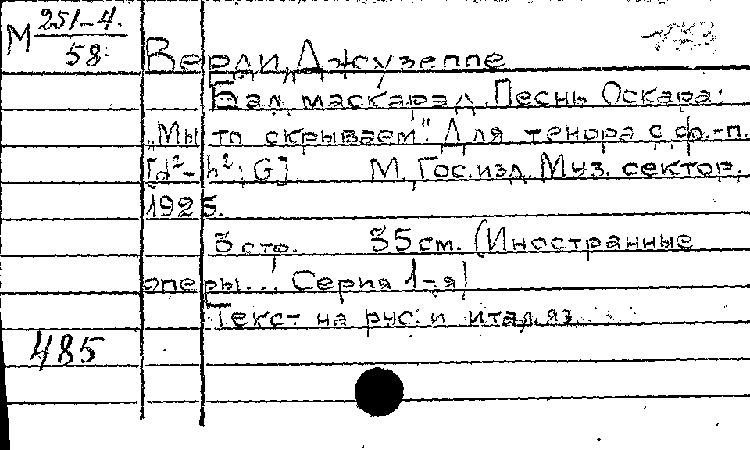 М 251-4.
58
Верди, Джузеппе
Бал маскарад. Песнь Оскара:
„Мы то скрываем". Для тенора с ф.-п.
[d²-h²; G] М., Гос. изд. Муз. сектор,
1925.
3 стр. 35 см. (Иностранные
оперы... Серия 1-я)
Текст на рус. и итал. яз.
485